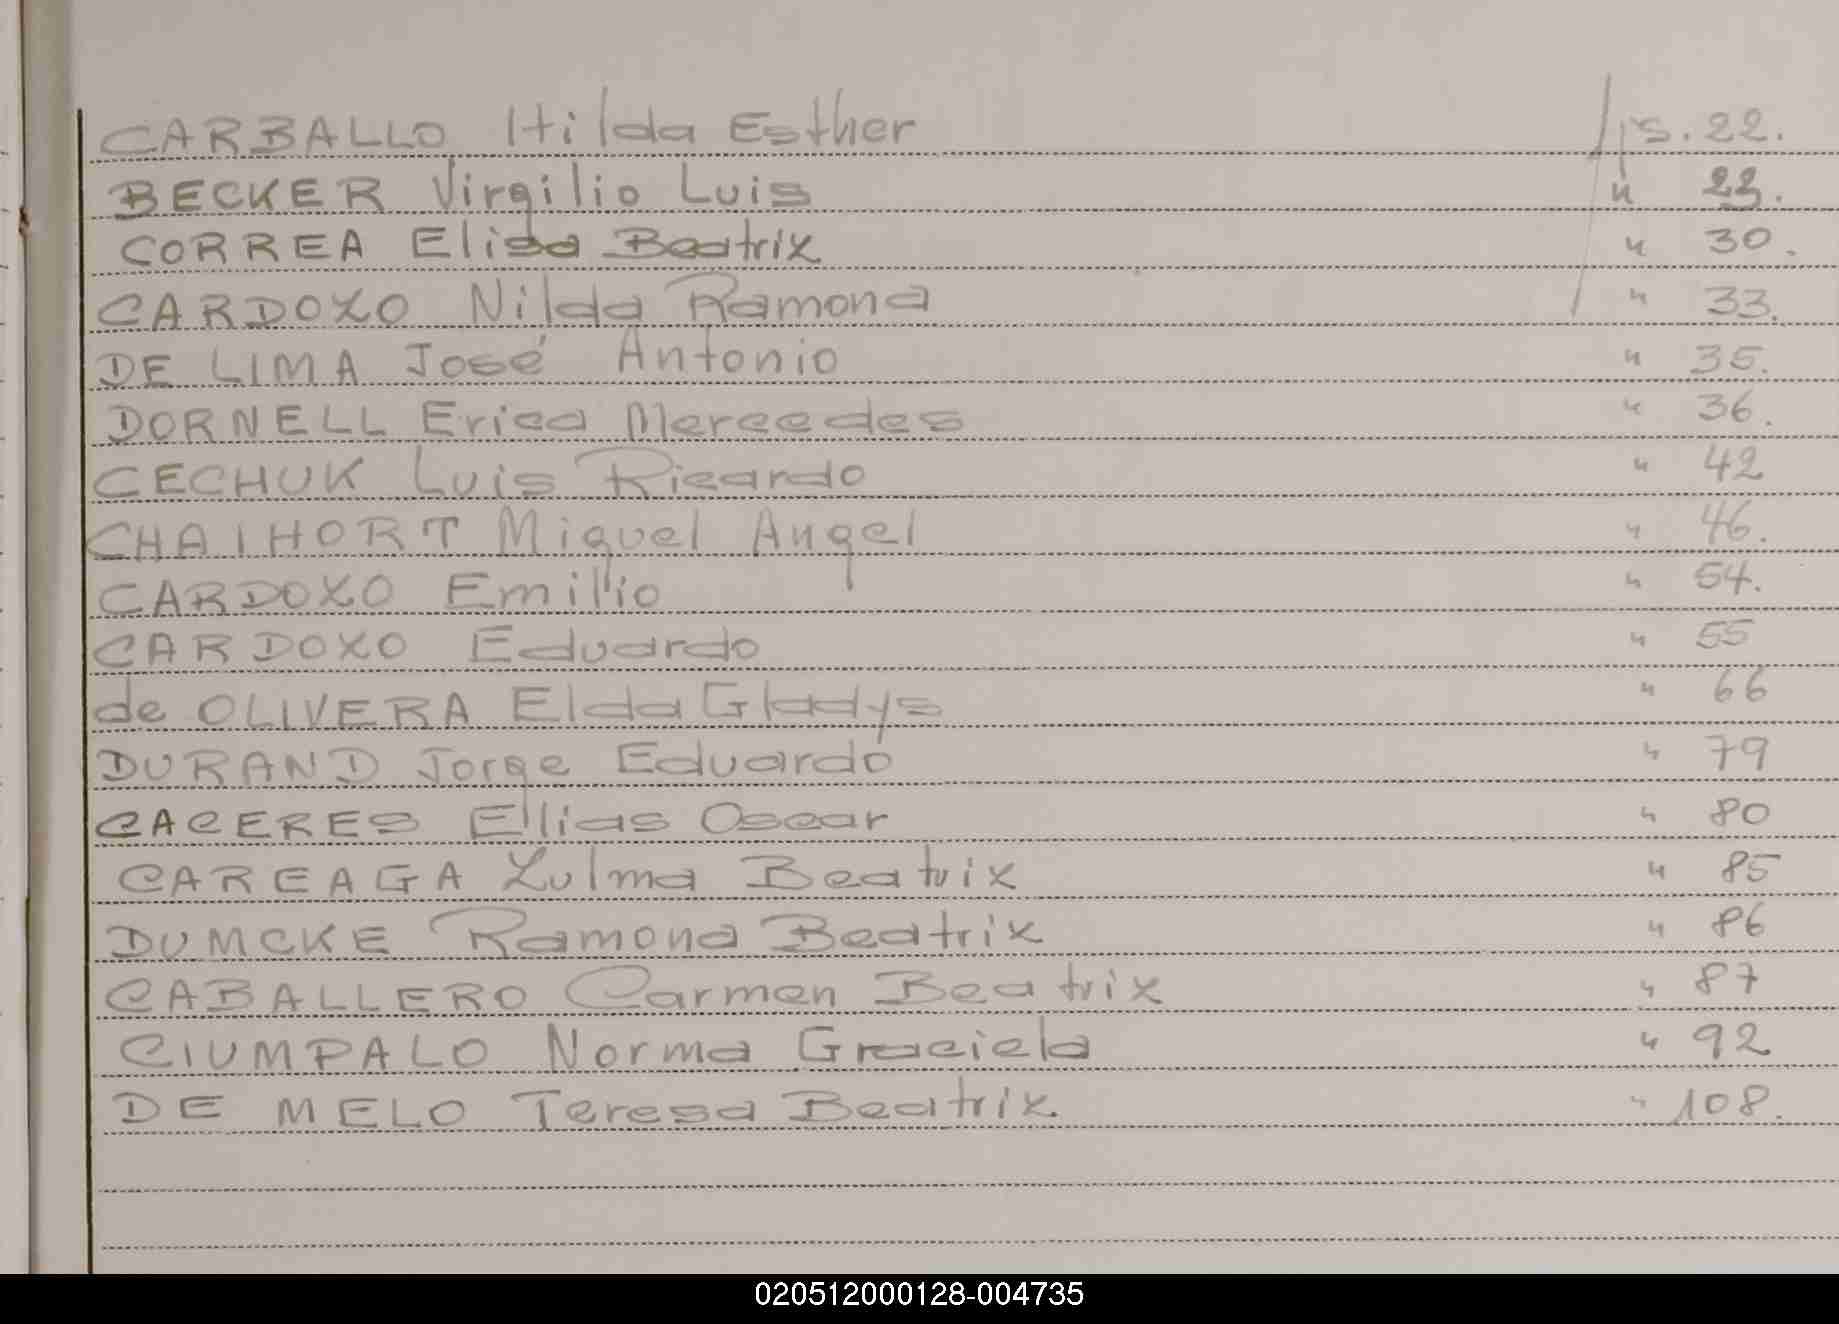 CARBALLO Hilda Esther fjs. 22.
BECKER Virgilio Luis " 23.
CORREA Elisa Beatriz " 30.
CARDOZO Nilda Ramona " 33.
DE LIMA José Antonio " 35.
DORNELL Erica Mercedes " 36.
CECHUK Luis Ricardo " 42
CHAIHORT Miguel Angel " 46.
CARDOZO Emilio " 54.
CARDOZO Eduardo " 55
de OLIVERA Elda Gladys " 66
DURAND Jorge Eduardo " 79
CACERES Elias Oscar " 80
CAREAGA Zulma Beatriz " 85
DUMCKE Ramona Beatriz " 86
CABALLERO Carmen Beatriz " 87
CIUMPALO Norma Graciela " 92
DE MELO Teresa Beatriz " 108.
020512000128-004735